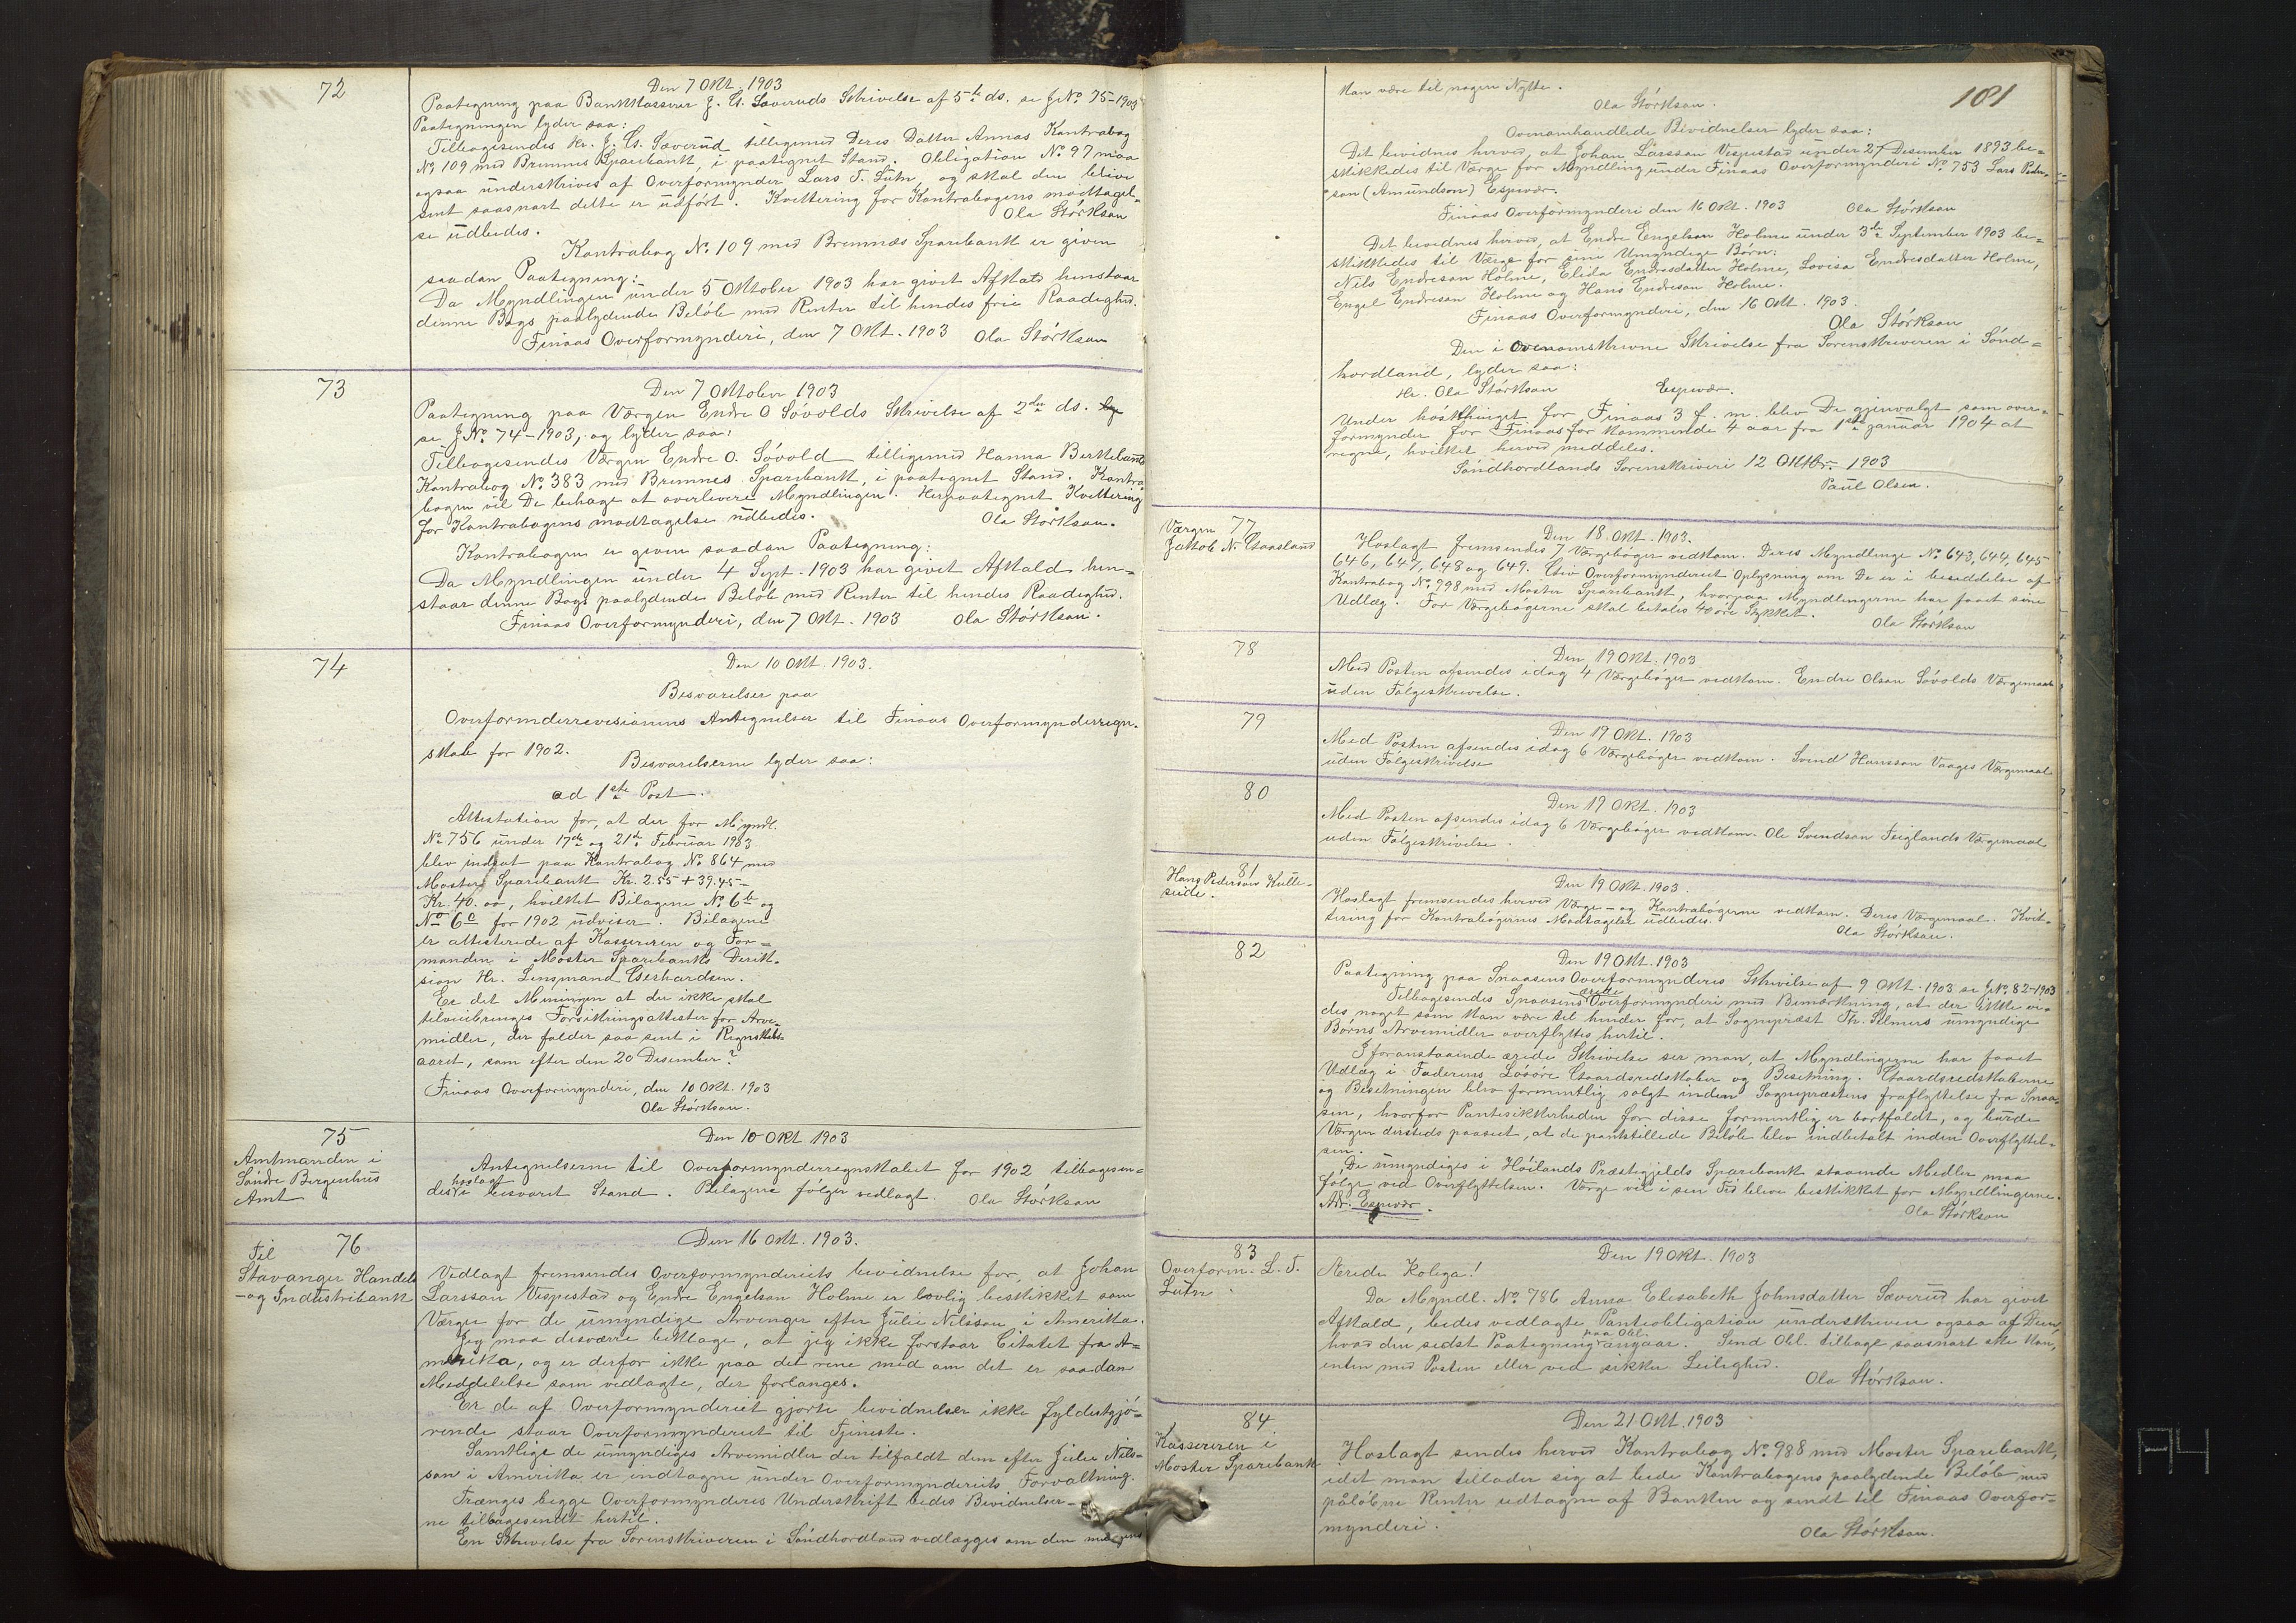 72
Den 7 Okt. 1903
Paategning paa Bankkasserer J. G. Sæveruds Skrivelse af 5te ds. se JNo. 75-1903
Paategningen lyder saa:
Tilbagesendes Hr. J. G. Sæverud tilligemed Deres Datter Annas Kontrabog
No 109 med Bremnes Sparebank, i paategnet Stand. Obligation No. 97 maa
ogsaa underskrives af Overformynder Lars T. Lutn, og skal den blive
sent saasnart dette er udført. Kvittering for Kontrabogens modtagel-
se udbedes.
Ola Størkson
Kontrabog No. 109 med Bremnes Sparebank er given
saadan Paategning:
Da Myndlingen under 5 Oktober 1903 har givet Afkald henstaar
denne Bogs paalydende Beløb med Renter til hendes frie Raadighed.
Finaas Overformynderi, den 7 Okt. 1903 Ola Størkson
73
Den 7 Oktober 1903
Paategning paa Værgen Endre O Søvolds Skrivelse af 2den ds.
se JNo. 74-1903, og lyder saa:
Tilbagesendes Værgen Endre O. Søvold tilligemed Hanna
Kontrabog No. 383 med Bremnes Sparebank, i paategnet Stand. Kontra-
bogen vil De behage at overlevere Myndlingen. Herpaategnet Kvittering
for Kontrabogens modtagelse udbedes.
Ola Størkson.
Kontrabogen er given saadan Paategning:
Da Myndlingen under 4 Sept. 1903 har givet Afkald hen-
staar denne Bogs paalydende Beløb med Renter til hendes Raadighed.
Finaas Overformynderi, den 7 Okt. 1903 Ola Størkson.
74
Den 10 Okt. 1903.
Besvarelser paa
Overformderrevisionens Antegnelser til Finaas Overformynderregn-
skab for 1902.
Besvarelserne lyder saa:
ad 1ste Post.
Attestation for, at der for Myndl.
No 756 under 17de og 21de Februar 1903
blev indsat paa Kontrabog No. 864 med
Moster Sparebank Kr. 2.55 + 39.45 -
Kr. 40. oo, hvilket Bilagene No. 6b og
No 6c for 1902 udviser. Bilagene
er attesterede af Kassereren og For-
manden i Moster Sparebanks Direk-
sion Hr. Lensmand Gerhardsen.
Er det Meningen at der ikke skal
tilveiebringes Forsikringsattester for Arve-
midler, der falder saa sent i Regnskabs-
aaret, som efter den 20 Desember?
Finaas Overformynderi, den 10 Okt. 1903
Ola Størkson.
75
Amtmanden i
Søndre Bergenhus
Amt
Den 10 Okt 1903
Antegnelserne til Overformynderregnskabet for 1902 tilbagesen-
hoslagt
des i besvaret Stand. Bilagene følger vedlagt. Ola Størkson
76
Til
Stavanger Handels
-og Industribank
Den 16 Okt. 1903.
Vedlagt fremsendes Overformynderiets bevidnelse for, at Johan
Larsson Vespestad og Endre Engelson Holme er lovlig beskikket som
Værger for de umyndige Arvinger efter Julie Nilsson i Amerika.
Jeg maa desværre beklage, at jeg ikke forstaar Citatet fra A-
merika, og er derfor ikke paa det rene med om det er saadan
Meddelelse som vedlagte, der forlanges.
Er de af Overformynderiet gjorte bevidnelser ikke fyldestgjø-
rende staar Overformynderiet til Tjeneste.
Samtlige de umyndiges Arvemidler der tilfaldt dem efter Julie Nils-
son i Amerika er indtagne under Overformynderiets Forvaltning.
Trænges begge Overformynderes Underskrift bedes Bevidnelser-
ne tilbagesendt hertil.
En Skrivelse fra Sorenskriveren i Søndhordland vedlægges om den
101
kan være til nogen Nytte.
Ola Størkson.
Ovenomhandlede Bevidnelser lyder saa:
Det bevidnes herved, at Johan Larsson Vespestad under 27 Desember 1893 be-
skikkedes til Værge for Myndling under Finaas Overformynderi No. 753 Lars Peder-
son (Amundson) Espevær.
Finaas Overformynderi den 16 Okt. 1903 Ola Størkson
Det bevidnes herved, at Endre Engelson Holme under 3de September 1903 be-
skikkedes til Værge for sine Umyndige Børn:
Nils Endreson Holme, Elida Endresdatter Holme, Lovisa Endresdatter Holme,
Engel Endreson Holme og Hans Endreson Holme.
Finaas Overformynderi, den 16 Okt. 1903.
Ola Størkson
Den i Ovenomskrevne Skrivelse fra Sorenskriveren i Sönd-
hordland, lyder saa:
Hr. Ola Størkson Espevær.
Under høstthinget for Finaas 3 d. m. blev De gjenvalgt som over-
formynder for Finaas for kommende 4 aar fra 1ste januar 1904 at
regne, hvilket herved meddeles.
Söndhordlands Sorenskriveri 12 Oktbr. 1903
Paul Olsen.
77
Værgen
Jakob N. Gaasland
Den 18 Okt. 1903.
Hoslagt fremsendes 7 Værgebøger vedkom. Deres Myndlinge No. 643, 644, 645
646, 647, 648 og 649. Giv Overformynderiet Oplysning om De er i besiddelse af
Kontrabog No. 998 med Moster Sparebank, hvorpaa Myndlingerne har faaet sine
Udlæg. For Værgebøgerne skal betales 40 øre Stykket.
Ola Størkson
78
Den 19 Okt. 1903
Med Posten afsendes idag 4 Værgebøger vedkom. Endre Olson Søvolds Værgemaal
uden Følgeskrivelse.
79
Den 19 Okt. 1903
Med Posten afsendes idag 6 Værgebøger vedkom. Svend Hansson Vaages Værgemaal
uden Følgeskrivelse
80
Den 19 Okt. 1903
Med Posten afsendes idag 6 Værgebøger vedkom. Ole Svendson Feiglands Værgemaal
uden Følgeskrivelse.
81
Hans Pederson Kulle-
seide.
Den 19 Okt. 1903.
Hoslagt fremsendes herved Værge- og Kontrabøgerne vedkom. Deres Værgemaal. Kvit-
tering for Kontrabøgernes Modtagelse udbedes.
Ola Størkson.
82
Den 19 Okt. 1903
Paategning paa Snaasens Overformynderis Skrivelse af 9 Okt. 1903 se JNo. 82-1903
ærede
Tilbagesendes Snaasens Overformynderi med Bemærkning, at der ikke vi-
des noget som kan være til hinder for, at Sognepræst Th. Selmers umyndige
Børns Arvemidler overflyttes hertil.
I foranstaaende ærede Skrivelse ser man, at Myndlingerne har faaet
Udlæg i Faderens Løsøre Gaardsredskaber og Besetning. Gaardsredskaberne
og Besetningen blev formentlig solgt inden Sognepræstens fraflyttelse fra Snaa-
sen, hvorfor Pantesikkerheden for disse formentlig er bortfaldt, og burde
Værgen dersteds paaseet, at de pantstillede Beløb blev indbetalt inden Overflyttel-
sen.
De umyndiges i Høilands Præstegjelds Sparebank staaende Medler maa
følge ved Overflyttelsen. Værge vil i sen Tid blive beskikket for Myndlingerne.
Adr. Espevær.
Ola Størkson
83
Overform. L. T.
Lutn.
Den 19 Okt. 1903
Ærede Kolega!
Da Myndl. No. 786 Anna Elisabeth Johnsdatter Sæverud har givet
Afkald, bedes vedlagte Panteobligation underskreven ogsaa af Dem,
paa Obl.
hvad den sidst Paategning angaar. Send Obl. tilbage saasnart ske kan,
enten med Posten eller ved sikker Leilighed.
Ola Størkson.
84
Kassereren i
Moster Sparebank
Den 21 Okt. 1903
Hoslagt sendes herved Kontrabog No. 988 med Moster Sparebank,
idet man tillader sig at bede Kontrabogens paalydende Beløb med
påløbne Renter udtagne af Banken og sendt til Finaas Overfor-
mynderi.
Ola Størkson.